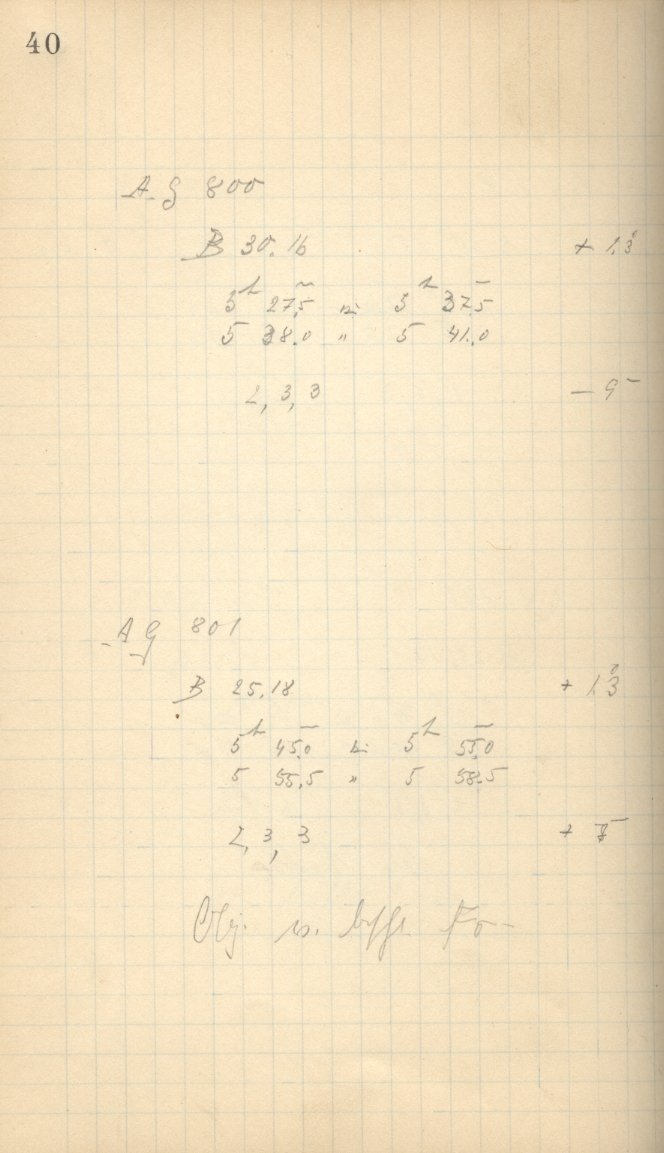 40
A G 800
B 30.16 + 1.3°
5h 27.5m bis 5h 37.5m
5 38.0 " 5 41.0
2, 3, 3 - 9m
A G 801
B 25.18 + 1.3°
5h 45.0m bis 5h 55.0m
5 55.5 " 5 58.5
2, 3, 3
Obj.